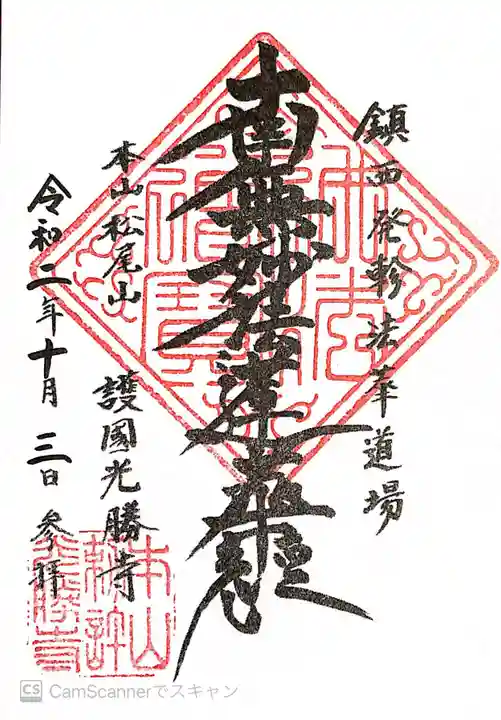 鎮西発軫法華道場
南無妙法蓮華経
本山松尾山
護國光勝寺
令和二年十月三日参拝
本山
光勝寺
CS CamScannerでスキャン